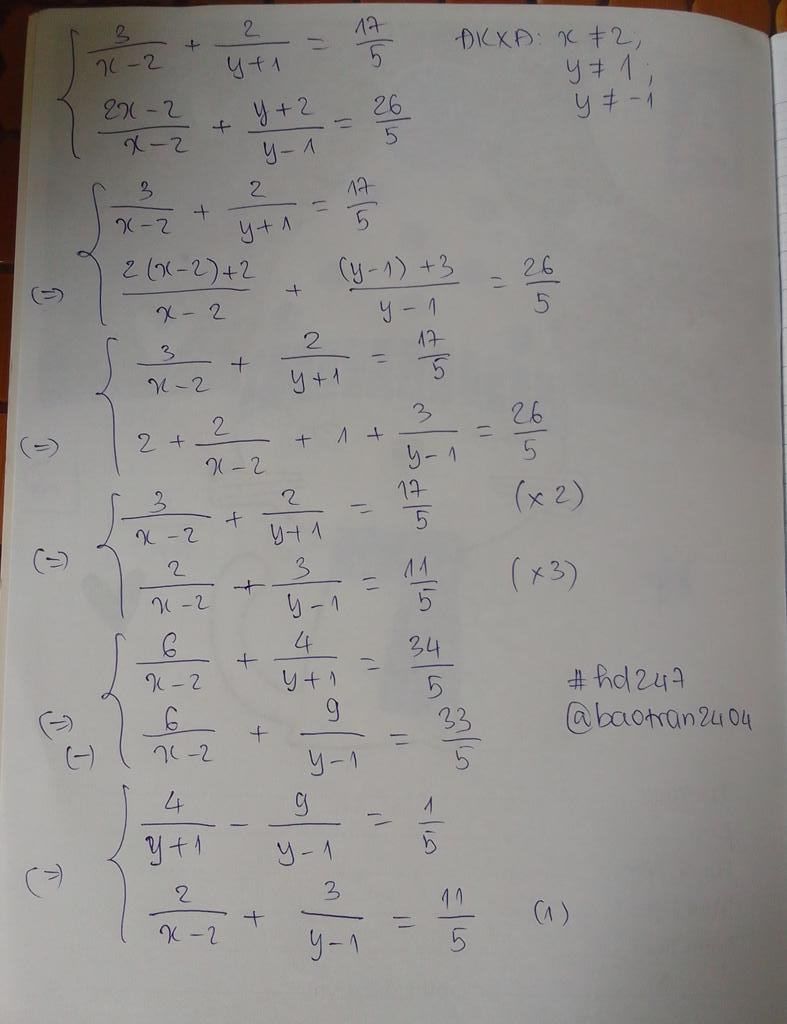 { 3/(x-2) + 2/(y+1) = 17/5 ĐKXĐ: x ≠ 2;
y ≠ 1;
(2x-2)/(x-2) + (y+2)/(y-1) = 26/5 y ≠ -1
{ 3/(x-2) + 2/(y+1) = 17/5
(=) (2(x-2)+2)/(x-2) + ((y-1)+3)/(y-1) = 26/5
{ 3/(x-2) + 2/(y+1) = 17/5
(=) 2 + 2/(x-2) + 1 + 3/(y-1) = 26/5
{ 3/(x-2) + 2/(y+1) = 17/5 (x2)
(=) 2/(x-2) + 3/(y-1) = 11/5 (x3)
{ 6/(x-2) + 4/(y+1) = 34/5
(=) (-) 6/(x-2) + 9/(y-1) = 33/5
#hd247
@baotran2404
{ 4/(y+1) - 9/(y-1) = 1/5
(=) 2/(x-2) + 3/(y-1) = 11/5 (1)